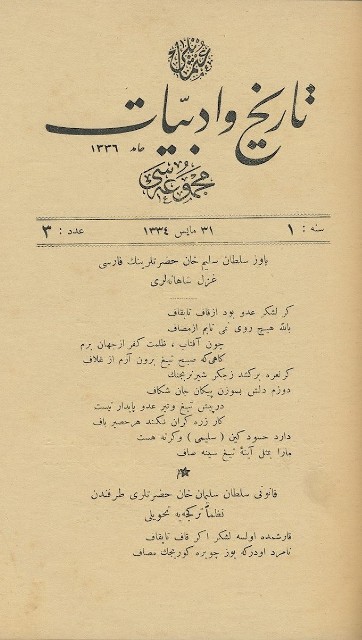 عثمانلى
تاريخ و ادبيات
مجموعه‌سى
حامد ١٣٣٦
سنه : ١
٣١ مايس ١٣٣٤
عدد : ٣
ياوز سلطان سليم خان حضرتلرينك فارسى
غزل شاهانه‌لرى
كر لشكر عدو بود از قاف تا بقاف
بالله هيچ روى نمى تابم از مصاف
چون آفتاب ، ظلمت كفر از جهان برم
كاهى كه صبح تيغ برون آرم از غلاف
كر نعره بركشد ز جكر شير نر بجنك
دوزم دلش بسوزن پيكان جان شكاف
در پيش تيغ و تير عدو پايدار نيست
كار زره كران نكنند هر حصير باف
دارد حسود كين ( سليمى ) و كرنه هست
مارا بمثل آينهٔ تيغ سينه صاف
قانونى سلطان سليمان خان حضرتلرى طرفندن
نظماً تركجه‌يه تحويلى
قارشمده اولسه لشكر اكر قاف تا بقاف
نامرد اودر كه يوز چويره كورنجك مصاف